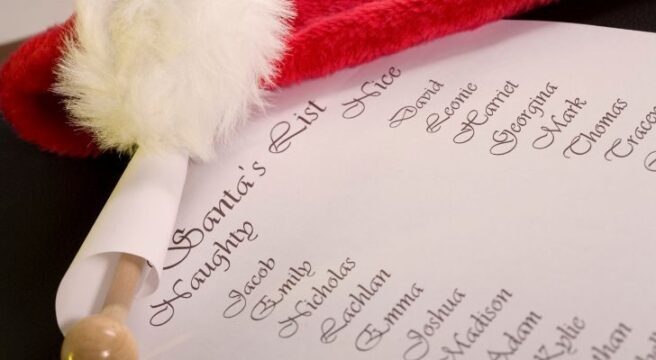 Santa's List
Nice
David
Leonie
Harriet
Georgina
Mark
Thomas
Naughty
Jacob
Emily
Nicholas
Lachlan
Emma
Joshua
Madison
Adam
Kylie